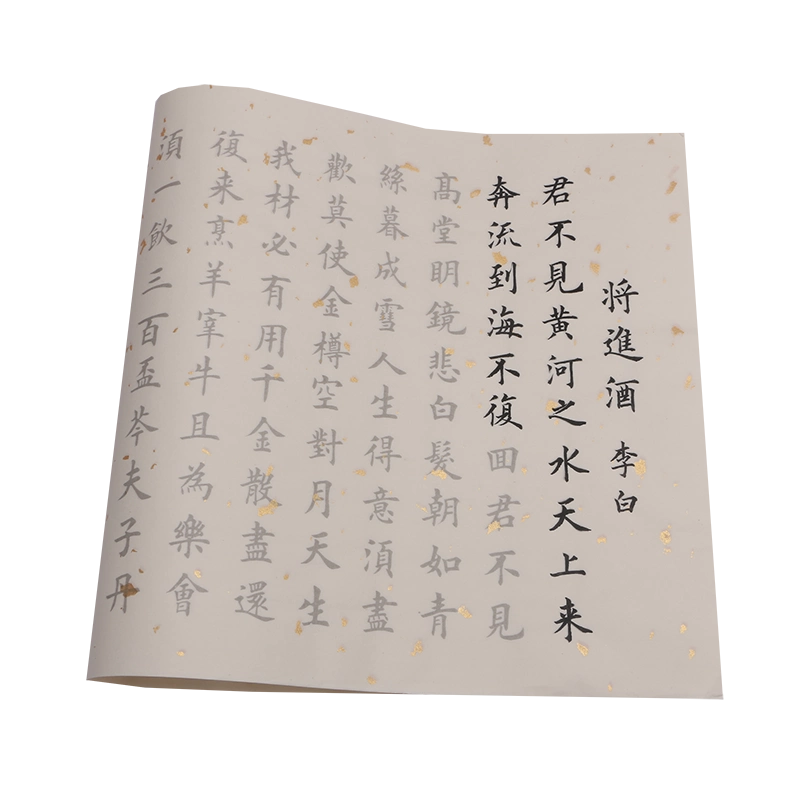 将進酒 李白
君不見黄河之水天上来
奔流到海不復囬君不見
髙堂眀鏡悲白髮朝如青
絲暮成雪人生得意湏盡
歡莫使金樽空對月天生
我材必有用千金散盡還
復来烹羊宰牛且為樂會
湏一飲三百盃岑夫子丹